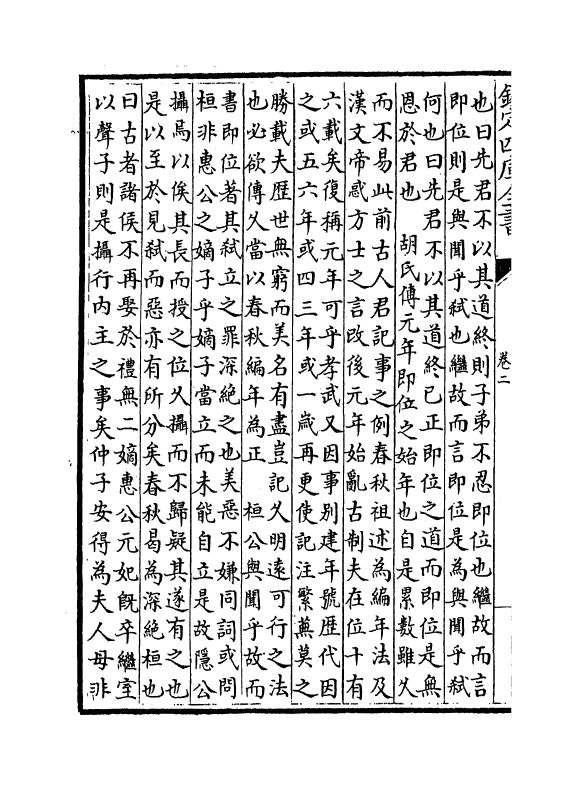 欽定四庫全書
卷二
也曰先君不以其道終則子弟不忍即位也繼故而言
即位則是與聞乎弑也繼故而言即位是為與聞乎弑
何也曰先君不以其道終已正即位之道而即位是無
恩於君也　胡氏傳元年即位之始年也自是累數雖乆
而不易此前古人君記事之例春秋祖述為編年法及
漢文帝惑方士之言改後元年始亂古制夫在位十有
六載矣復稱元年可乎孝武又因事别建年號歴代因
之或五六年或四三年或一嵗再更使記注繁蕪莫之
勝載夫歴世無窮而美名有盡豈記乆明逺可行之法
也必欲傳乆當以春秋編年為正　桓公與聞乎故而
書即位著其弑立之罪深絶之也美惡不嫌同詞或問
桓非惠公之嫡子乎嫡子當立而未能自立是故隐公
攝焉以俟其長而授之位乆攝而不歸疑其遂有之也
是以至於見弑而惡亦有所分矣春秋曷為深絶桓也
曰古者諸侯不再娶於禮無二嫡惠公元妃旣卒繼室
以聲子則是攝行内主之事矣仲子安得為夫人母非